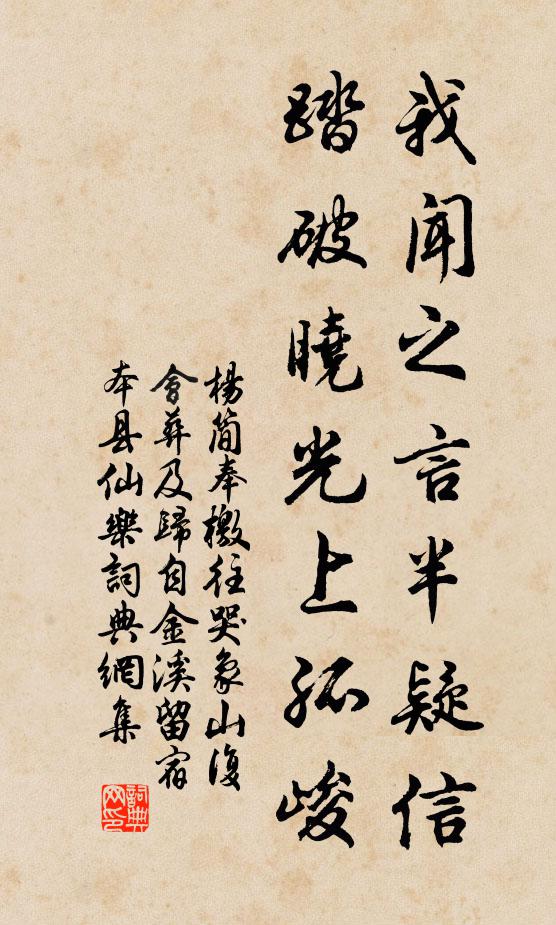 我聞之言半疑信
踏破曉光上孤峻
楊簡奉檄往哭象山復
會葬及歸自金溪留宿
本县仙樂詞典網集
詞典
网印